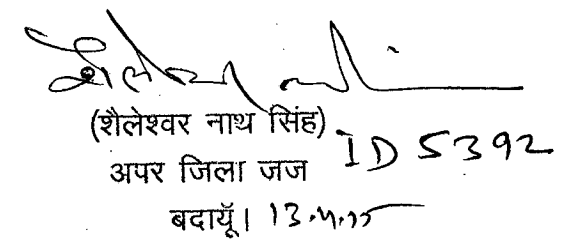 (शैलेश्वर नाथ सिंह)
अपर जिला जज ID 5392
बदायूॅ। 13.4.15